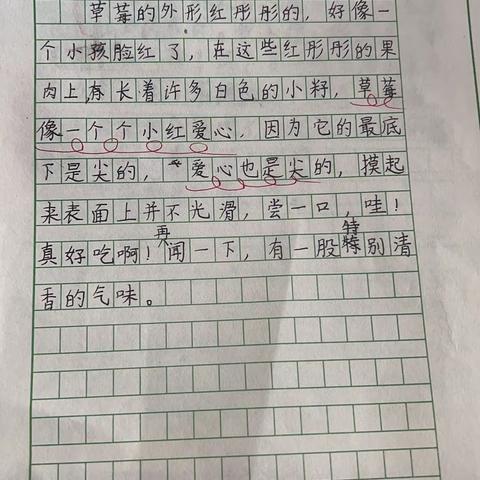 草莓的外形红彤彤的，好像一
个小孩脸红了，在这些红彤彤的果
肉上，存长着许多白色的小籽，草莓
像一个个小红爱心，因为它的最底
下是尖的，爱心也是尖的，摸起
来表面上并不光滑，尝一口，哇！
真好吃啊！再闻一下，有一股特别清
香的气味。